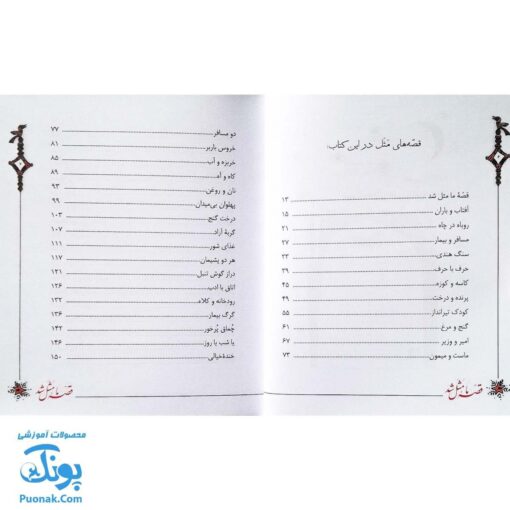 قصّه‌های مَثَل در این کتاب:
قصّهٔ ما مثل شد ۱۳
آفتاب و باران ۱۵
روباه در چاه ۲۱
مسافر و بیمار ۲۷
سنگ هندی ۳۳
حرف با حرف ۳۹
کاسه و کوزه ۴۵
پرنده و درخت ۴۹
کودک تیرانداز ۵۵
گنج و مرغ ۶۱
امیر و وزیر ۶۷
ماست و میمون ۷۳
قصّه ما مثل شد
دو مسافر ۷۷
خروس باربر ۸۱
خربزه و آب ۸۵
کاه و آه ۸۹
نان و روغن ۹۳
پهلوان بی‌میدان ۹۹
درخت گنج ۱۰۳
گربهٔ آزاد ۱۰۷
غذای شور ۱۱۱
هر دو پشیمان ۱۱۷
دراز گوش تنبل ۱۲۱
اتاق با ادب ۱۲۶
رودخانه و کلاه ۱۳۲
گرگ بیمار ۱۳۶
چُماق پُرخور ۱۴۲
یا شب یا روز ۱۴۶
خندهٔ خیالی ۱۵۰
قصّه ما مثل شد
محصولات آموزشی
پونک
Puonak.Com